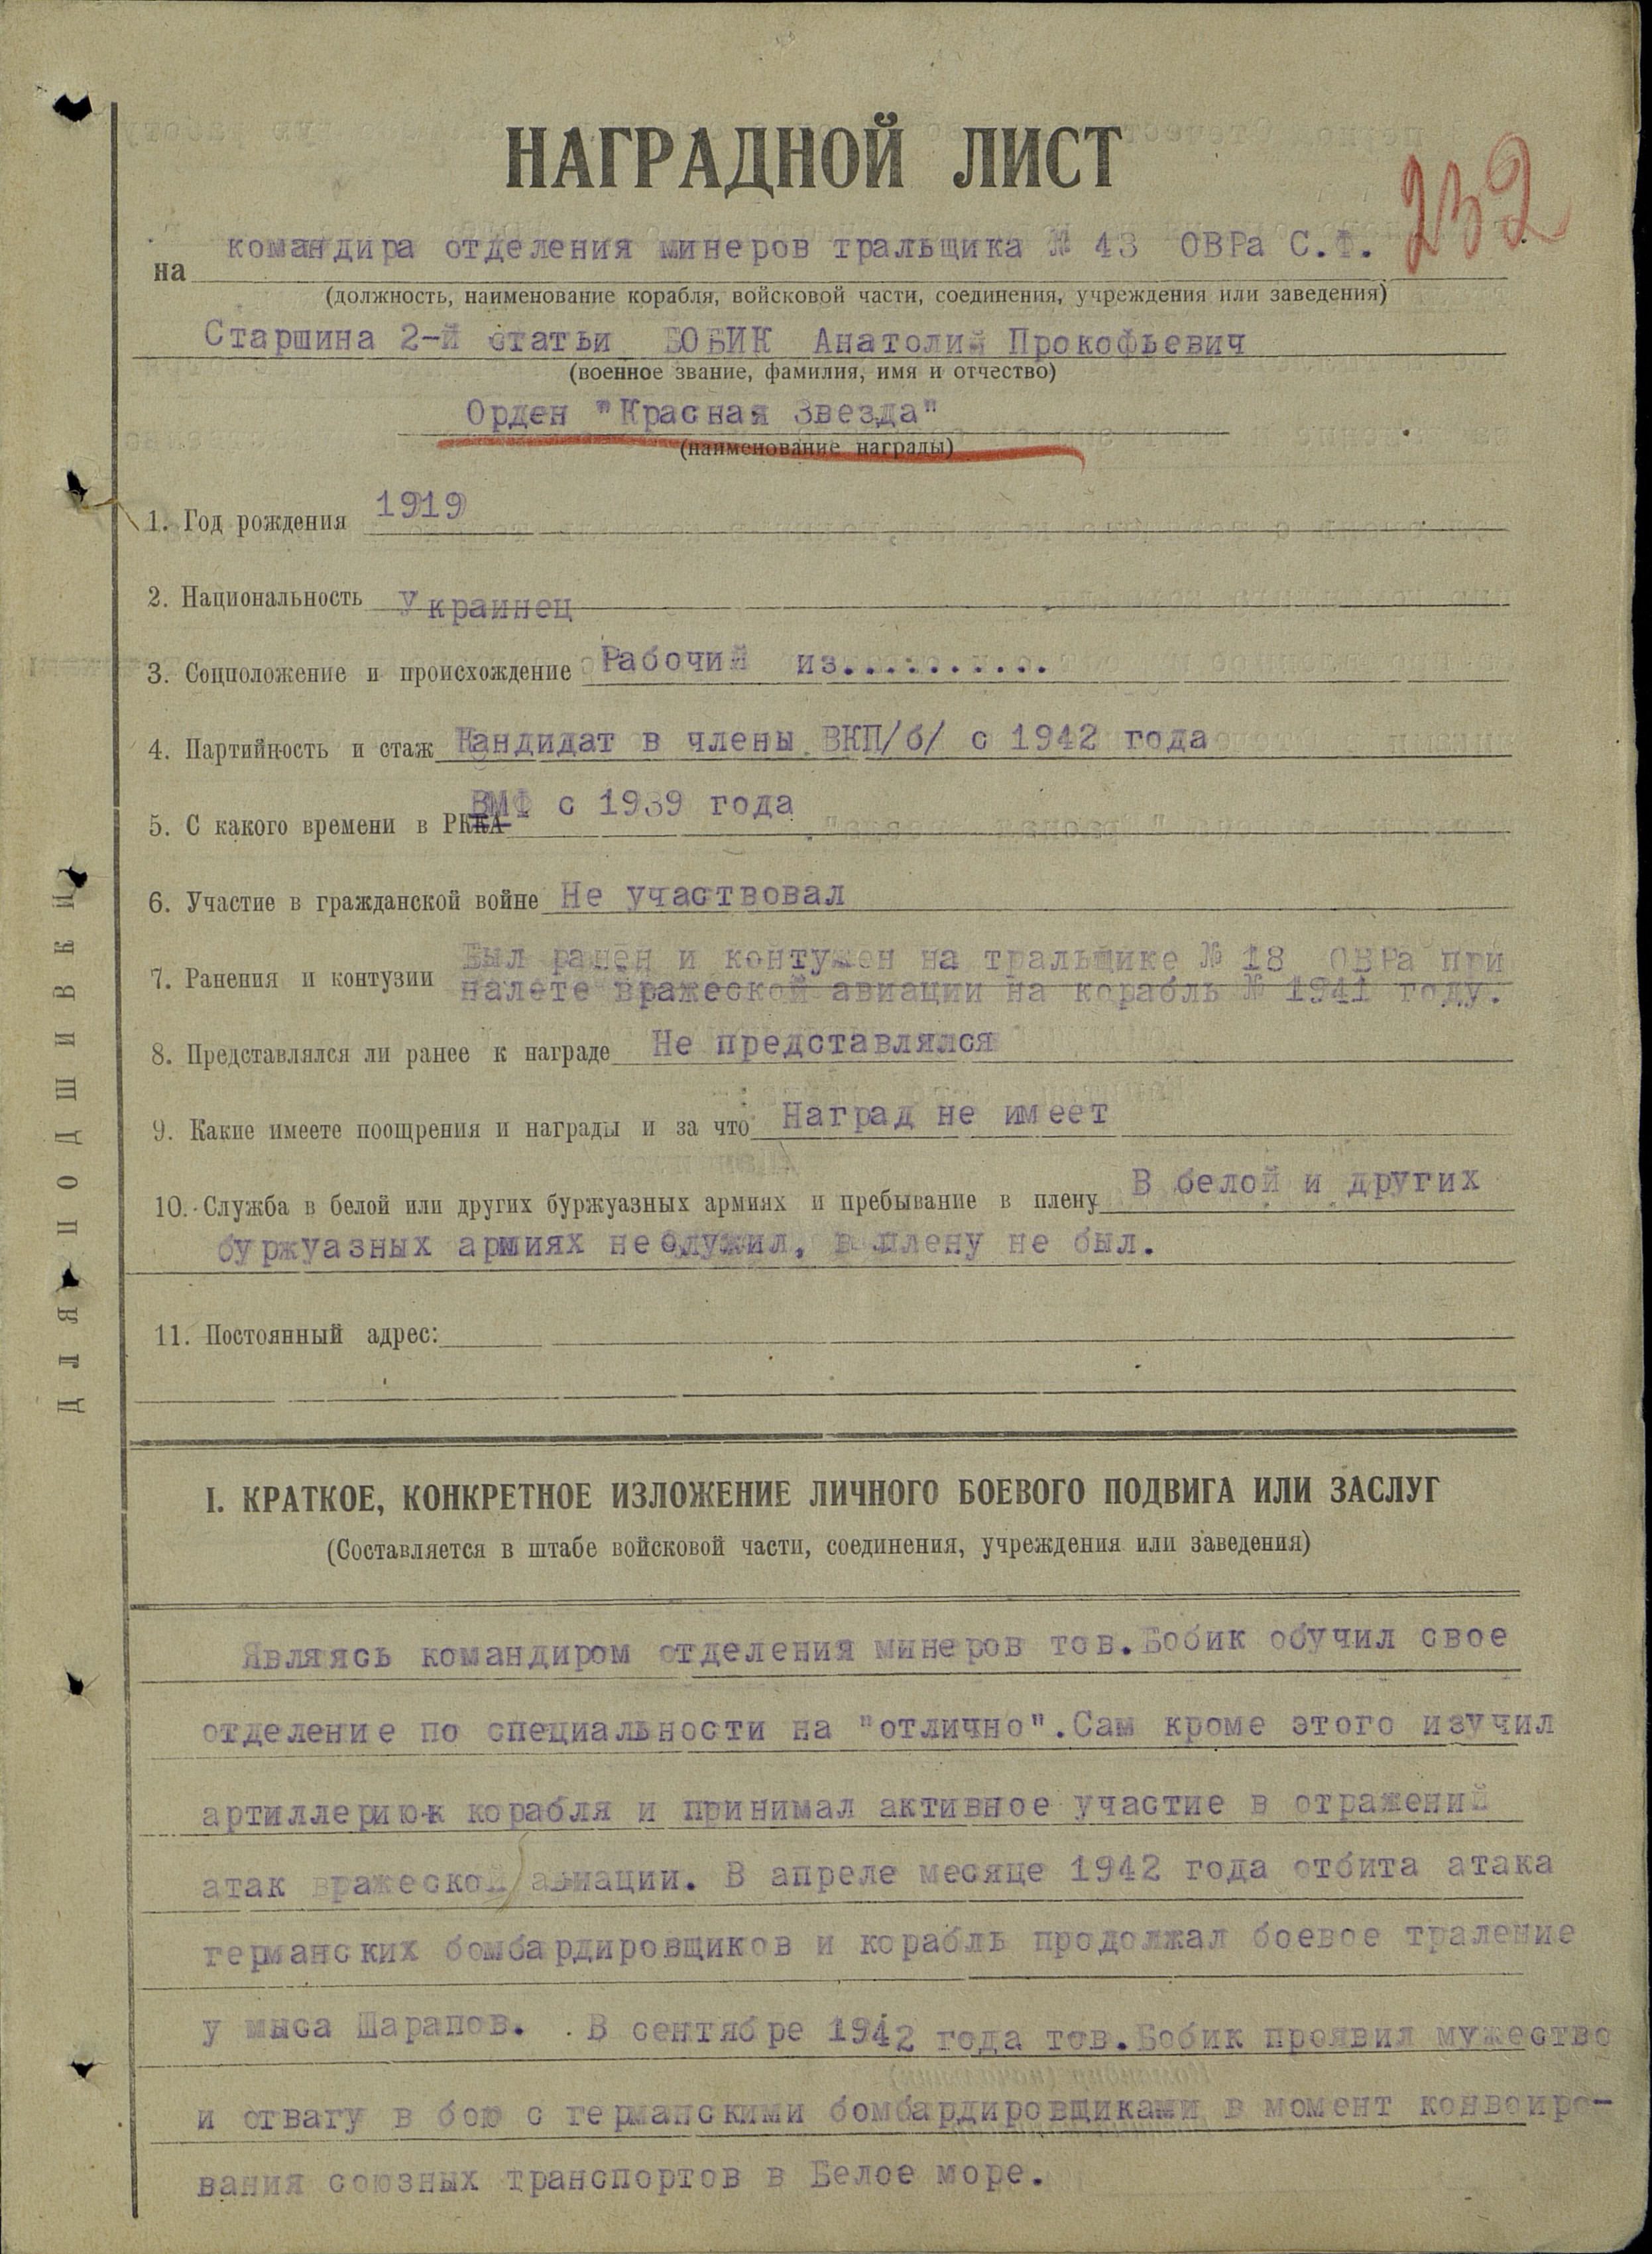 НАГРАДНОЙ ЛИСТ
232
на командира отделения минеров тральщика № 43 ОВРа С.Ф.
(должность, наименование корабля, войсковой части, соединения, учреждения или заведения)
Старшина 2-й статьи БОБИК Анатолий Прокофьевич
(военное звание, фамилия, имя и отчество)
Орден "Красная Звезда"
(наименование награды)
1. Год рождения 1919
2. Национальность Украинец
3. Соцположение и происхождение Рабочий из..........
4. Партийность и стаж Кандидат в члены ВКП/б/ с 1942 года
5. С какого времени в РККА ВМФ с 1939 года
6. Участие в гражданской войне Не участвовал
7. Ранения и контузии Был ранен и контужен на тральщике № 18 ОВРа при
налете вражеской авиации на корабль № 1941 году.
8. Представлялся ли ранее к награде Не представлялся
9. Какие имеете поощрения и награды и за что Наград не имеет
10. Служба в белой или других буржуазных армиях и пребывание в плену В белой и других
буржуазных армиях не служил, в плену не был.
11. Постоянный адрес:
ДЛЯ ПОДШИВКИ
I. КРАТКОЕ, КОНКРЕТНОЕ ИЗЛОЖЕНИЕ ЛИЧНОГО БОЕВОГО ПОДВИГА ИЛИ ЗАСЛУГ
(Составляется в штабе войсковой части, соединения, учреждения или заведения)
Являясь командиром отделения минеров тов.Бобик обучил свое
отделение по специальности на "отлично".Сам кроме этого изучил
артиллерию корабля и принимал активное участие в отражений
атак вражеской авиации. В апреле месяце 1942 года отбита атака
германских бомбардировщиков и корабль продолжал боевое траление
у мыса Шарапов. В сентябре 1942 года тов.Бобик проявил мужество
и отвагу в бою с германскими бомбардировщиками в момент конвоиро-
вания союзных транспортов в Белое море.